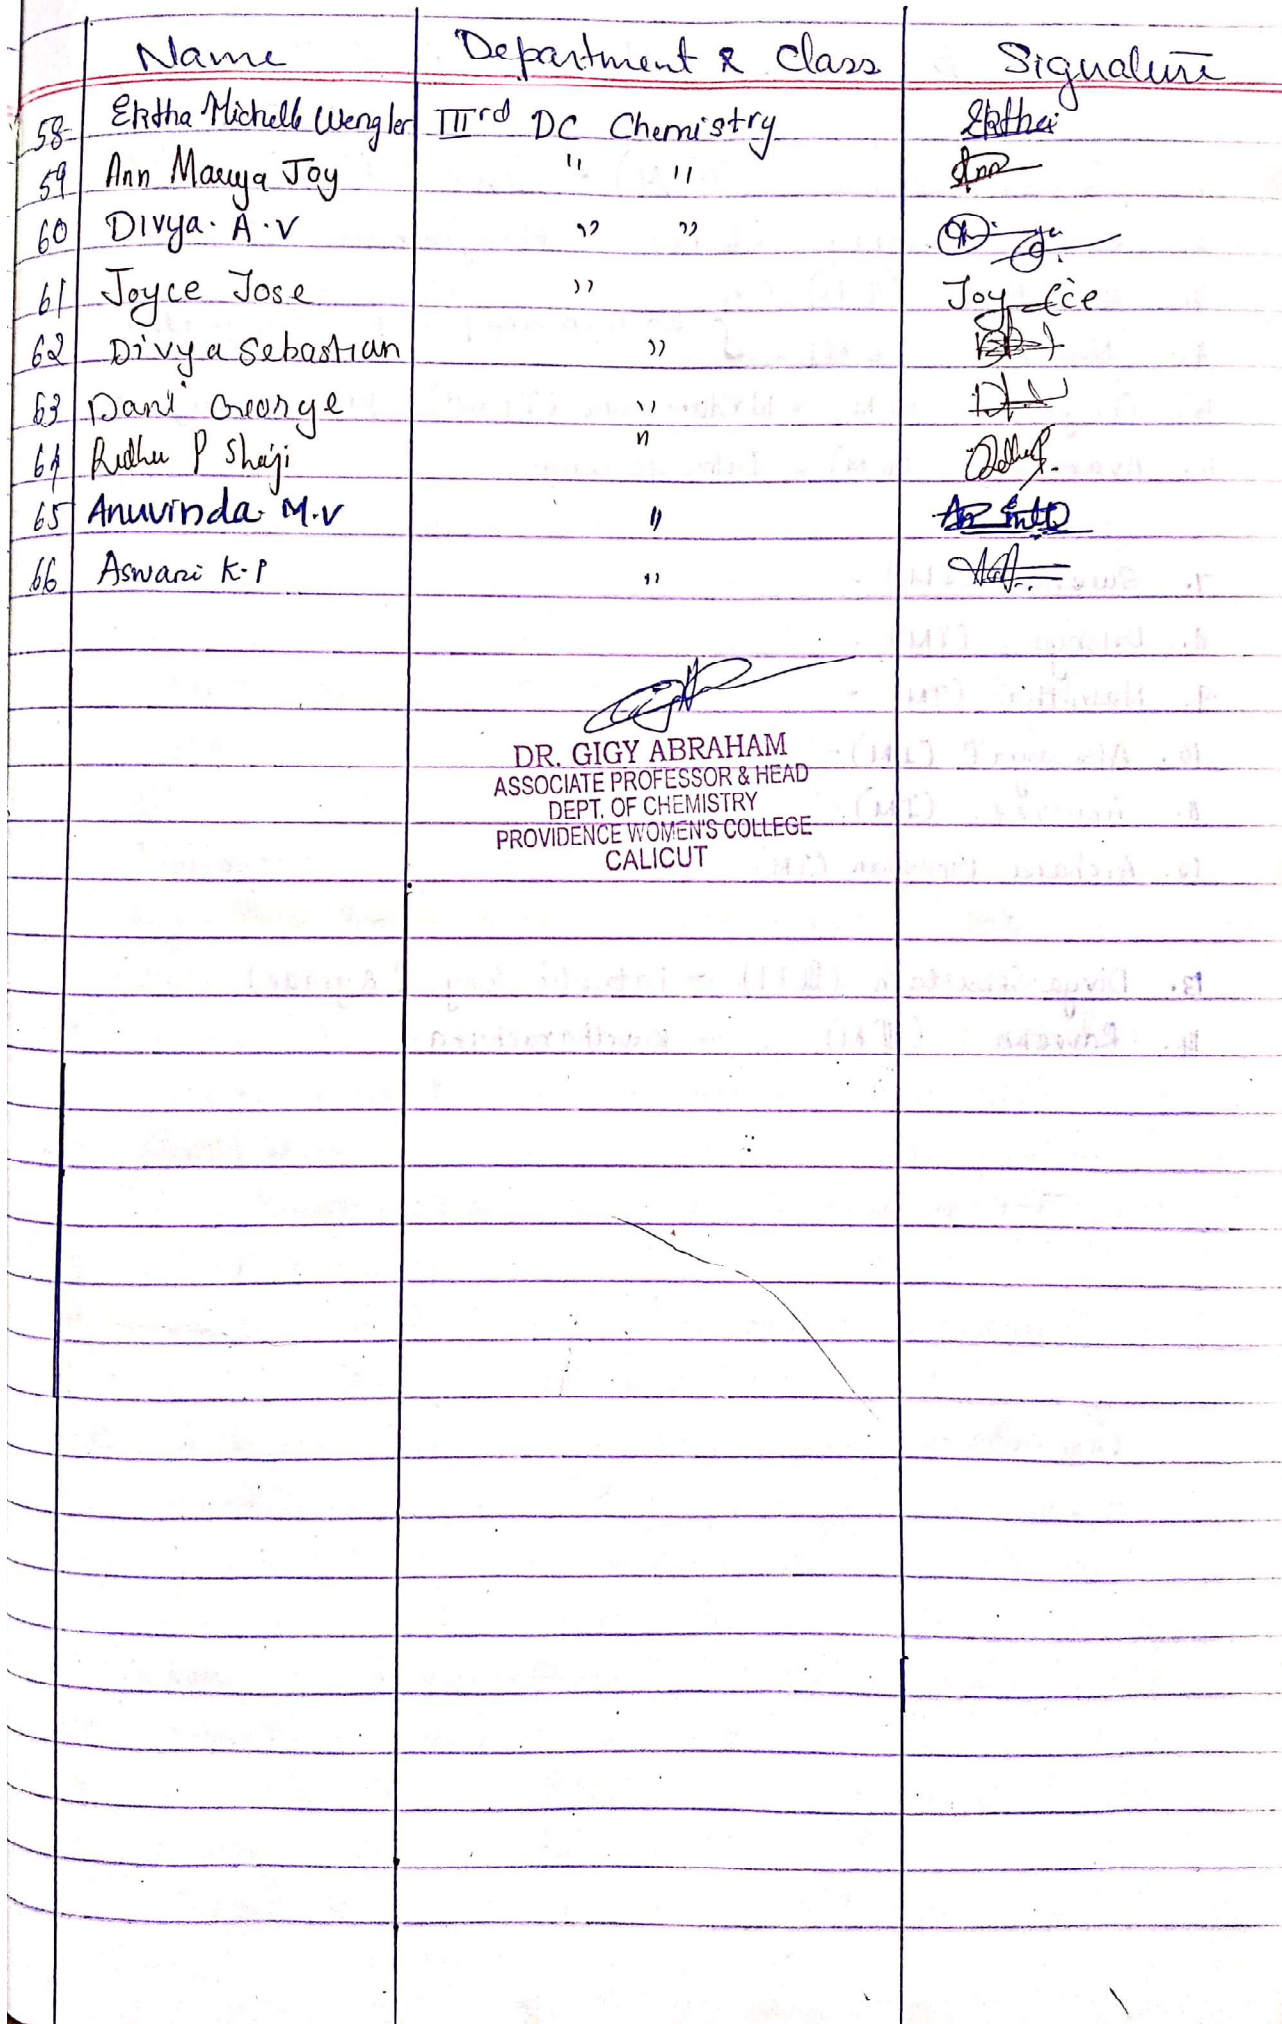 Name Department & Class Signature
58 Ektha Michelle Wengler IIIrd DC Chemistry Ektha
59 Ann Mariya Joy " " Ann
60 Divya. A.V " "
61 Joyce Jose "
62 Divya Sebastian "
63 Dani George "
64 Ridhu P Shaji "
65 Anuvinda. M.V "
66 Aswani K.P "
DR. GIGY ABRAHAM
ASSOCIATE PROFESSOR & HEAD
DEPT. OF CHEMISTRY
PROVIDENCE WOMEN'S COLLEGE
CALICUT